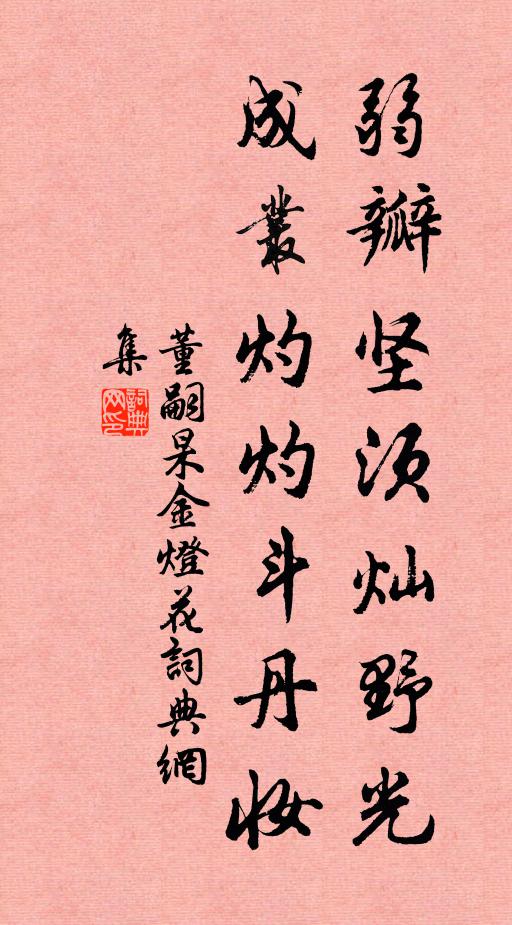 弱瓣坚须灿野光
成丛灼灼斗丹妆
董嗣杲金燈花詞典網
集
詞典網印